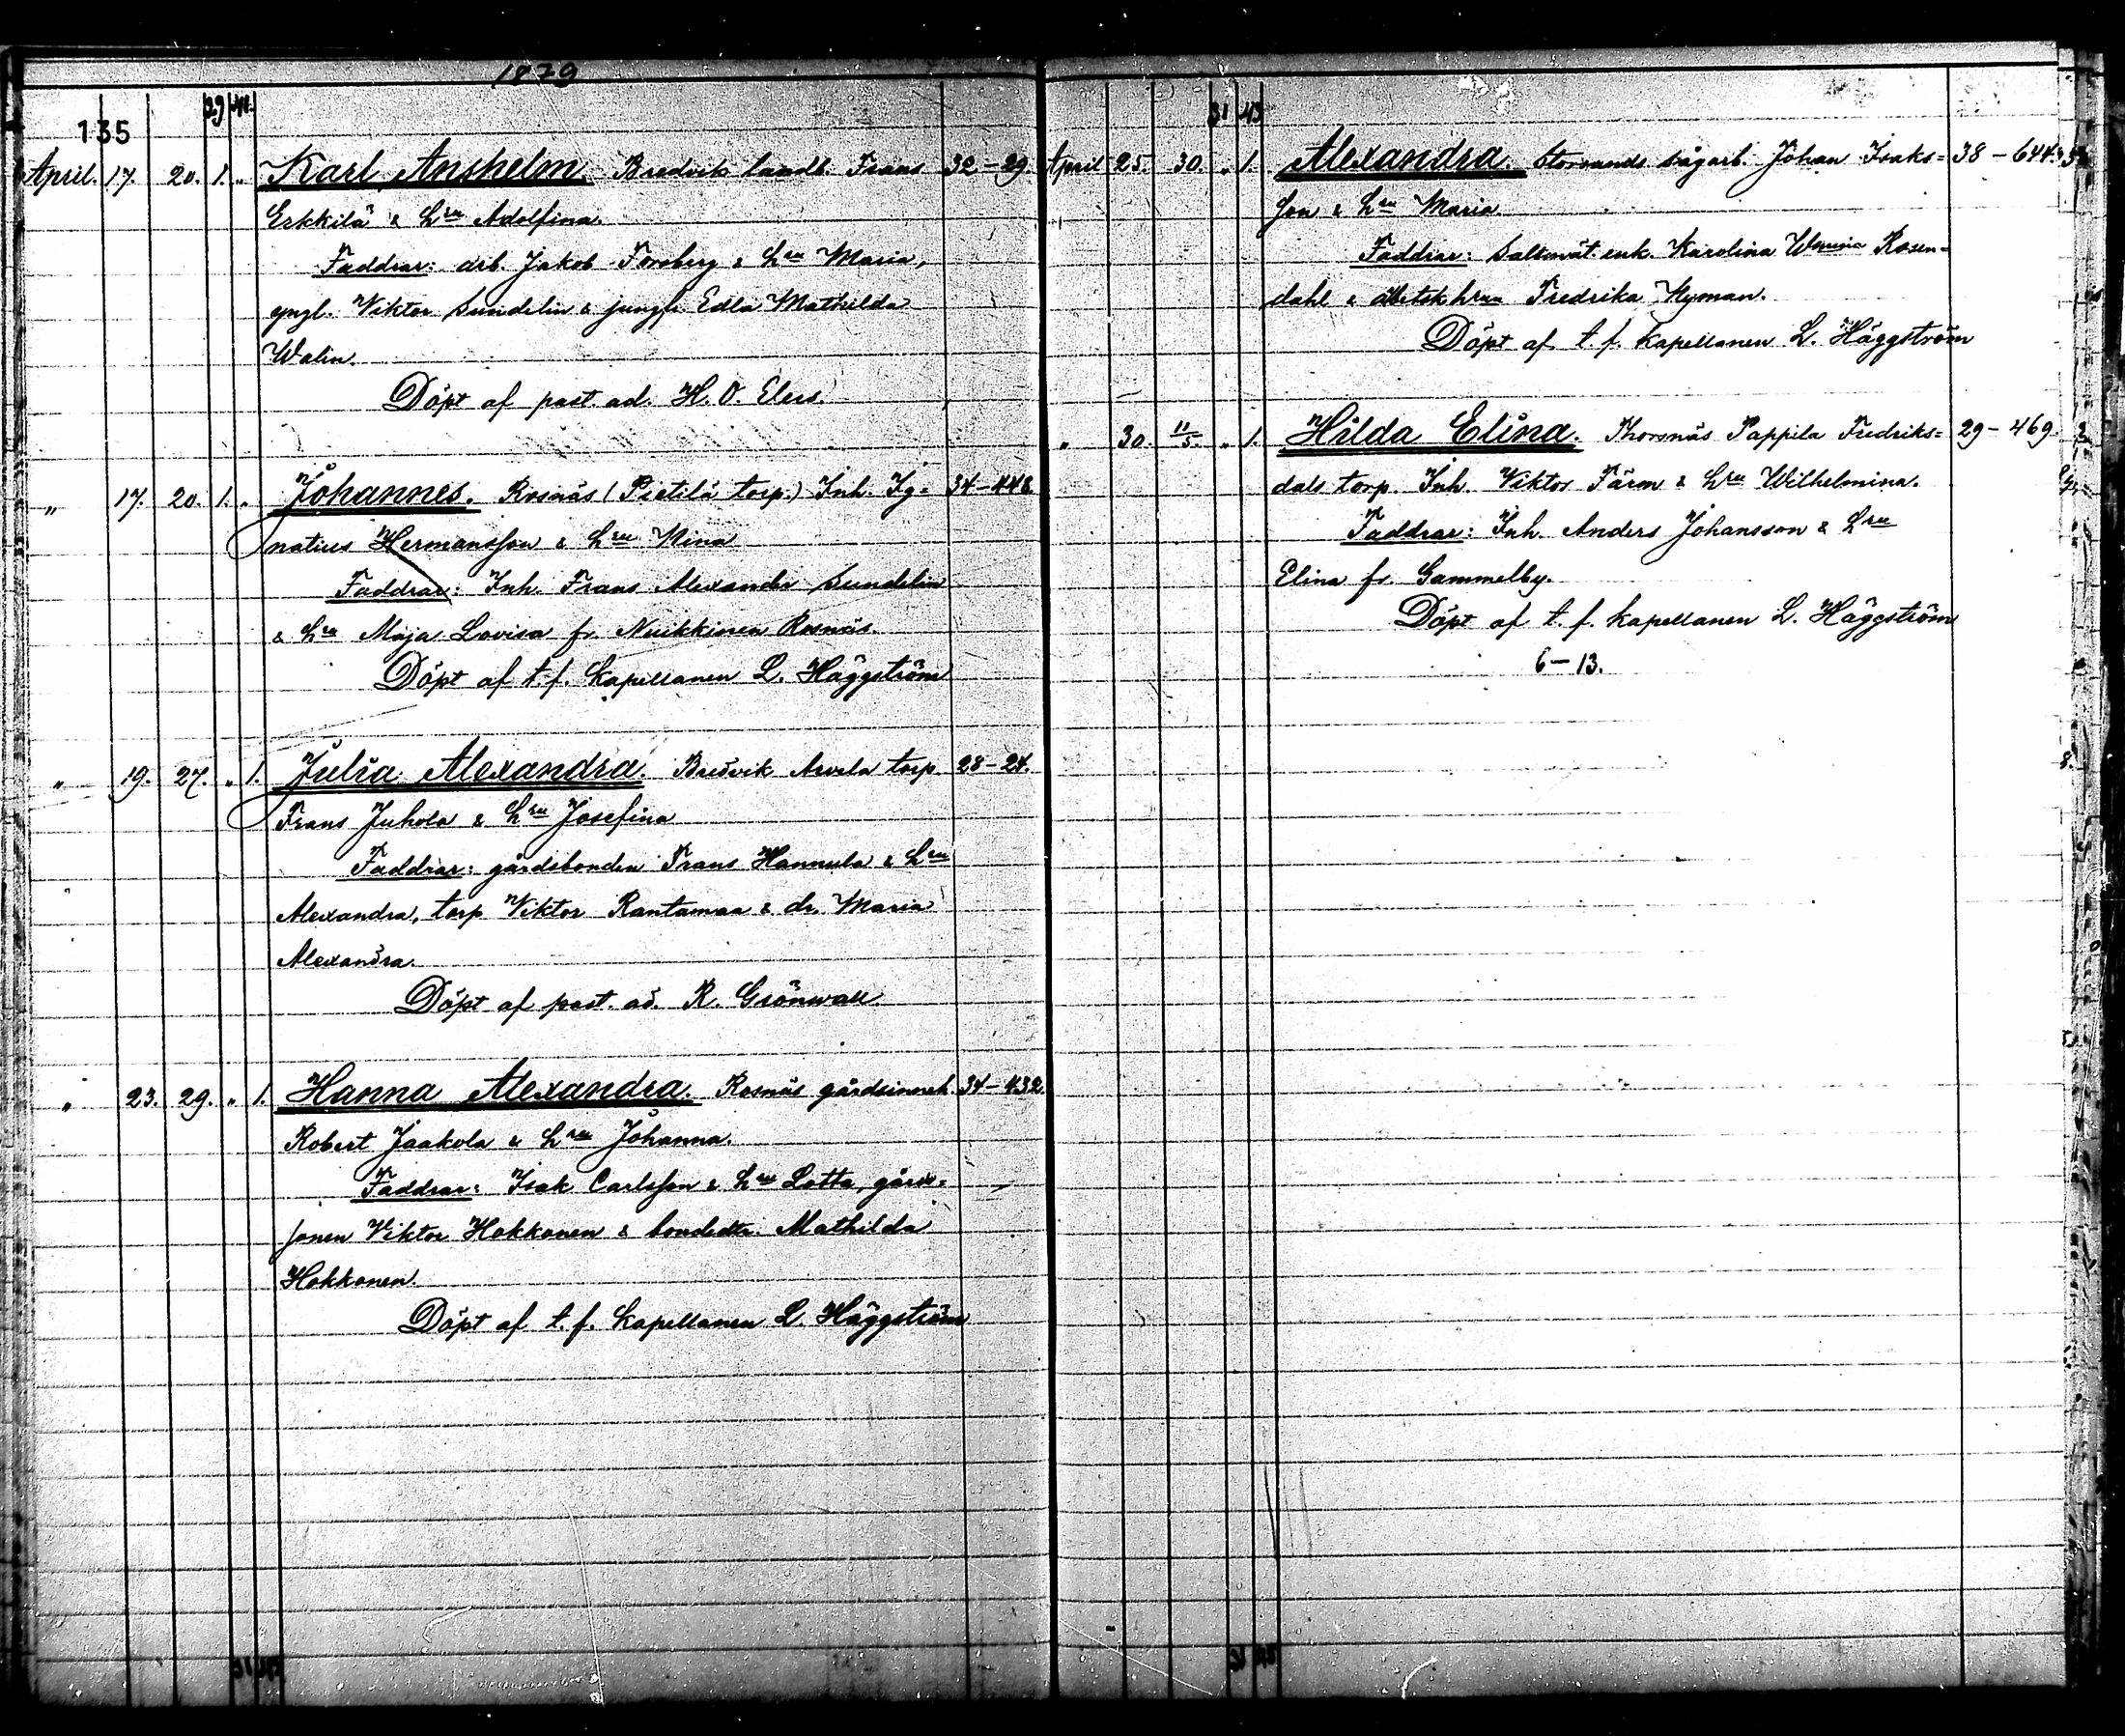 1879
135
29 41.
April. 17. 20. 1. " Karl Anshelm. Bredvik landb. Frans 32-29.
Erkkilä & hru Adolfina.
Faddrar: drb. Jakob Forsberg & hru Maria,
yngl. Viktor Sundelin & jungfr. Edla Mathilda
Walin.
Döpt af past. ad. H. O. Elers.
" 17. 20. 1. " Johannes. Rosnäs (Pietilä torp.) Inh. Ig= 34-448
natius Hermansson & hru Mina
Faddrar: Inh. Frans Alexander Sundelin
& hru Maja Lovisa fr. Nuikkinen Rosnäs.
Döpt af t. f. kapellanen L. Häggström
" 19. 27. " 1. Julia Alexandra. Bredvik Arvela torp. 28-24.
Frans Juhola & hru Josefina
Faddrar: gårdsbonden Frans Hannula & hru
Alexandra, torp. Viktor Rantamaa & dr. Maria
Alexandra.
Döpt af past. ad. R. Grönwall
" 23. 29. " 1. Hanna Alexandra. Rosnäs gårdsinneh. 34-432.
Robert Jaakola & hru Johanna.
Faddrar: Isak Carlsson & hru Lotta, gårds=
sonen Viktor Hokkonen & bondedtr. Mathilda
Hokkonen.
Döpt af t. f. kapellanen L. Häggström
31 43
April 25. 30. " 1. Alexandra. Storsands sågarb. Johan Isaks= 38-644.
son & hru Maria
Faddrar: enk. Karolina Rosen=
dahl & hrun Fredrika Nyman.
Döpt af t. f. kapellanen L. Häggström
" 30. 11/5. " 1. Hilda Elina. Thorsnäs Pappila Fredriks= 29-469.
dals torp. Inh. Viktor Färm & hru Wilhelmina.
Faddrar: Inh. Anders Johansson & hru
Elina fr. Gammelby.
Döpt af t. f. kapellanen L. Häggström
6-13.